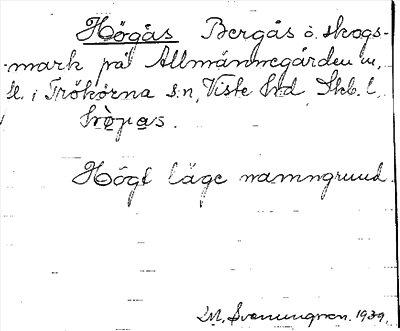 Högås Bergås å skogs-
-mark på Allmännegården m.
fl. i Trökörna s:n, Viste hd, Skb. l.
Högt läge namngrund.
M. Svenungson. 1939.